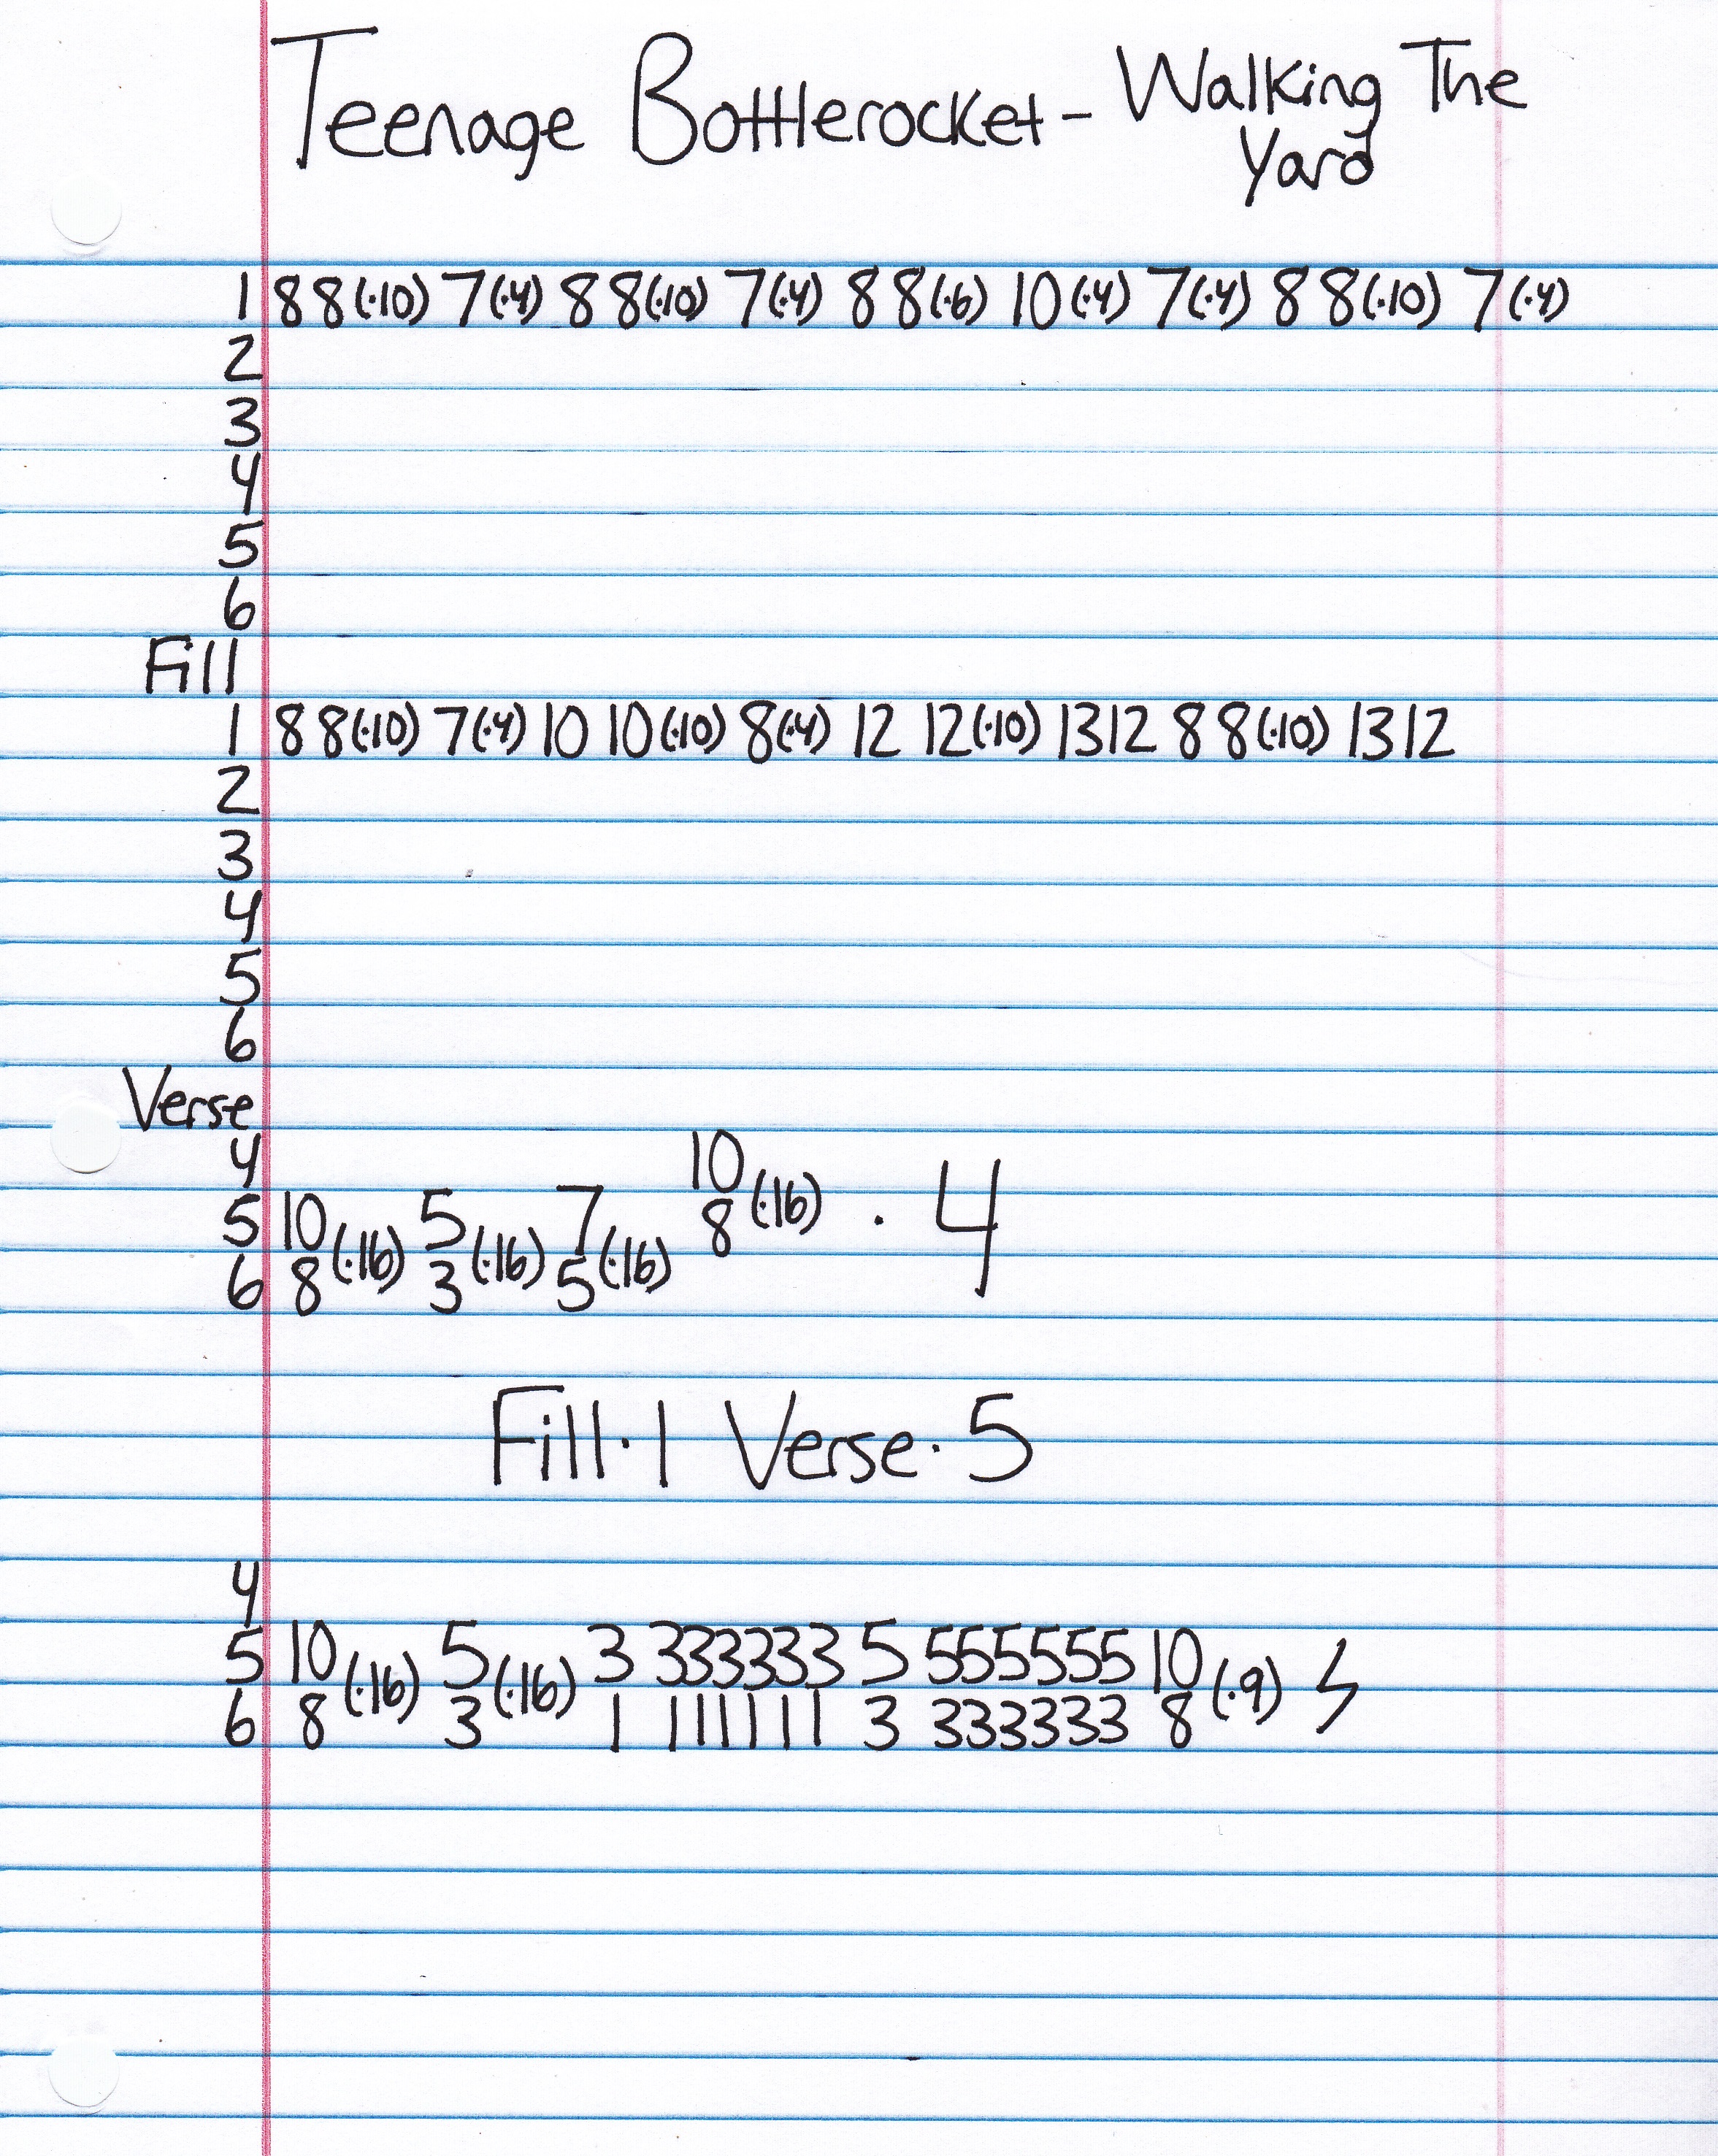 Teenage Bottlerocket - Walking The
Yard
1 8 8(·10) 7(·4) 8 8(·10) 7(·4) 8 8(·6) 10(·4) 7(·4) 8 8(·10) 7(·4)
2
3
4
5
6
Fill
1 8 8(·10) 7(·4) 10 10(·10) 8(·4) 12 12(·10) 13 12 8 8(·10) 13 12
2
3
4
5
6
Verse
4 10
5 10(·16) 5(·16) 7(·16) 8(·16) · 4
6 8 3 5
Fill·1 Verse·5
4
5 10(·16) 5(·16) 3 333333 5 555555 10(·9) ϟ
6 8 3 1 111111 3 333333 8